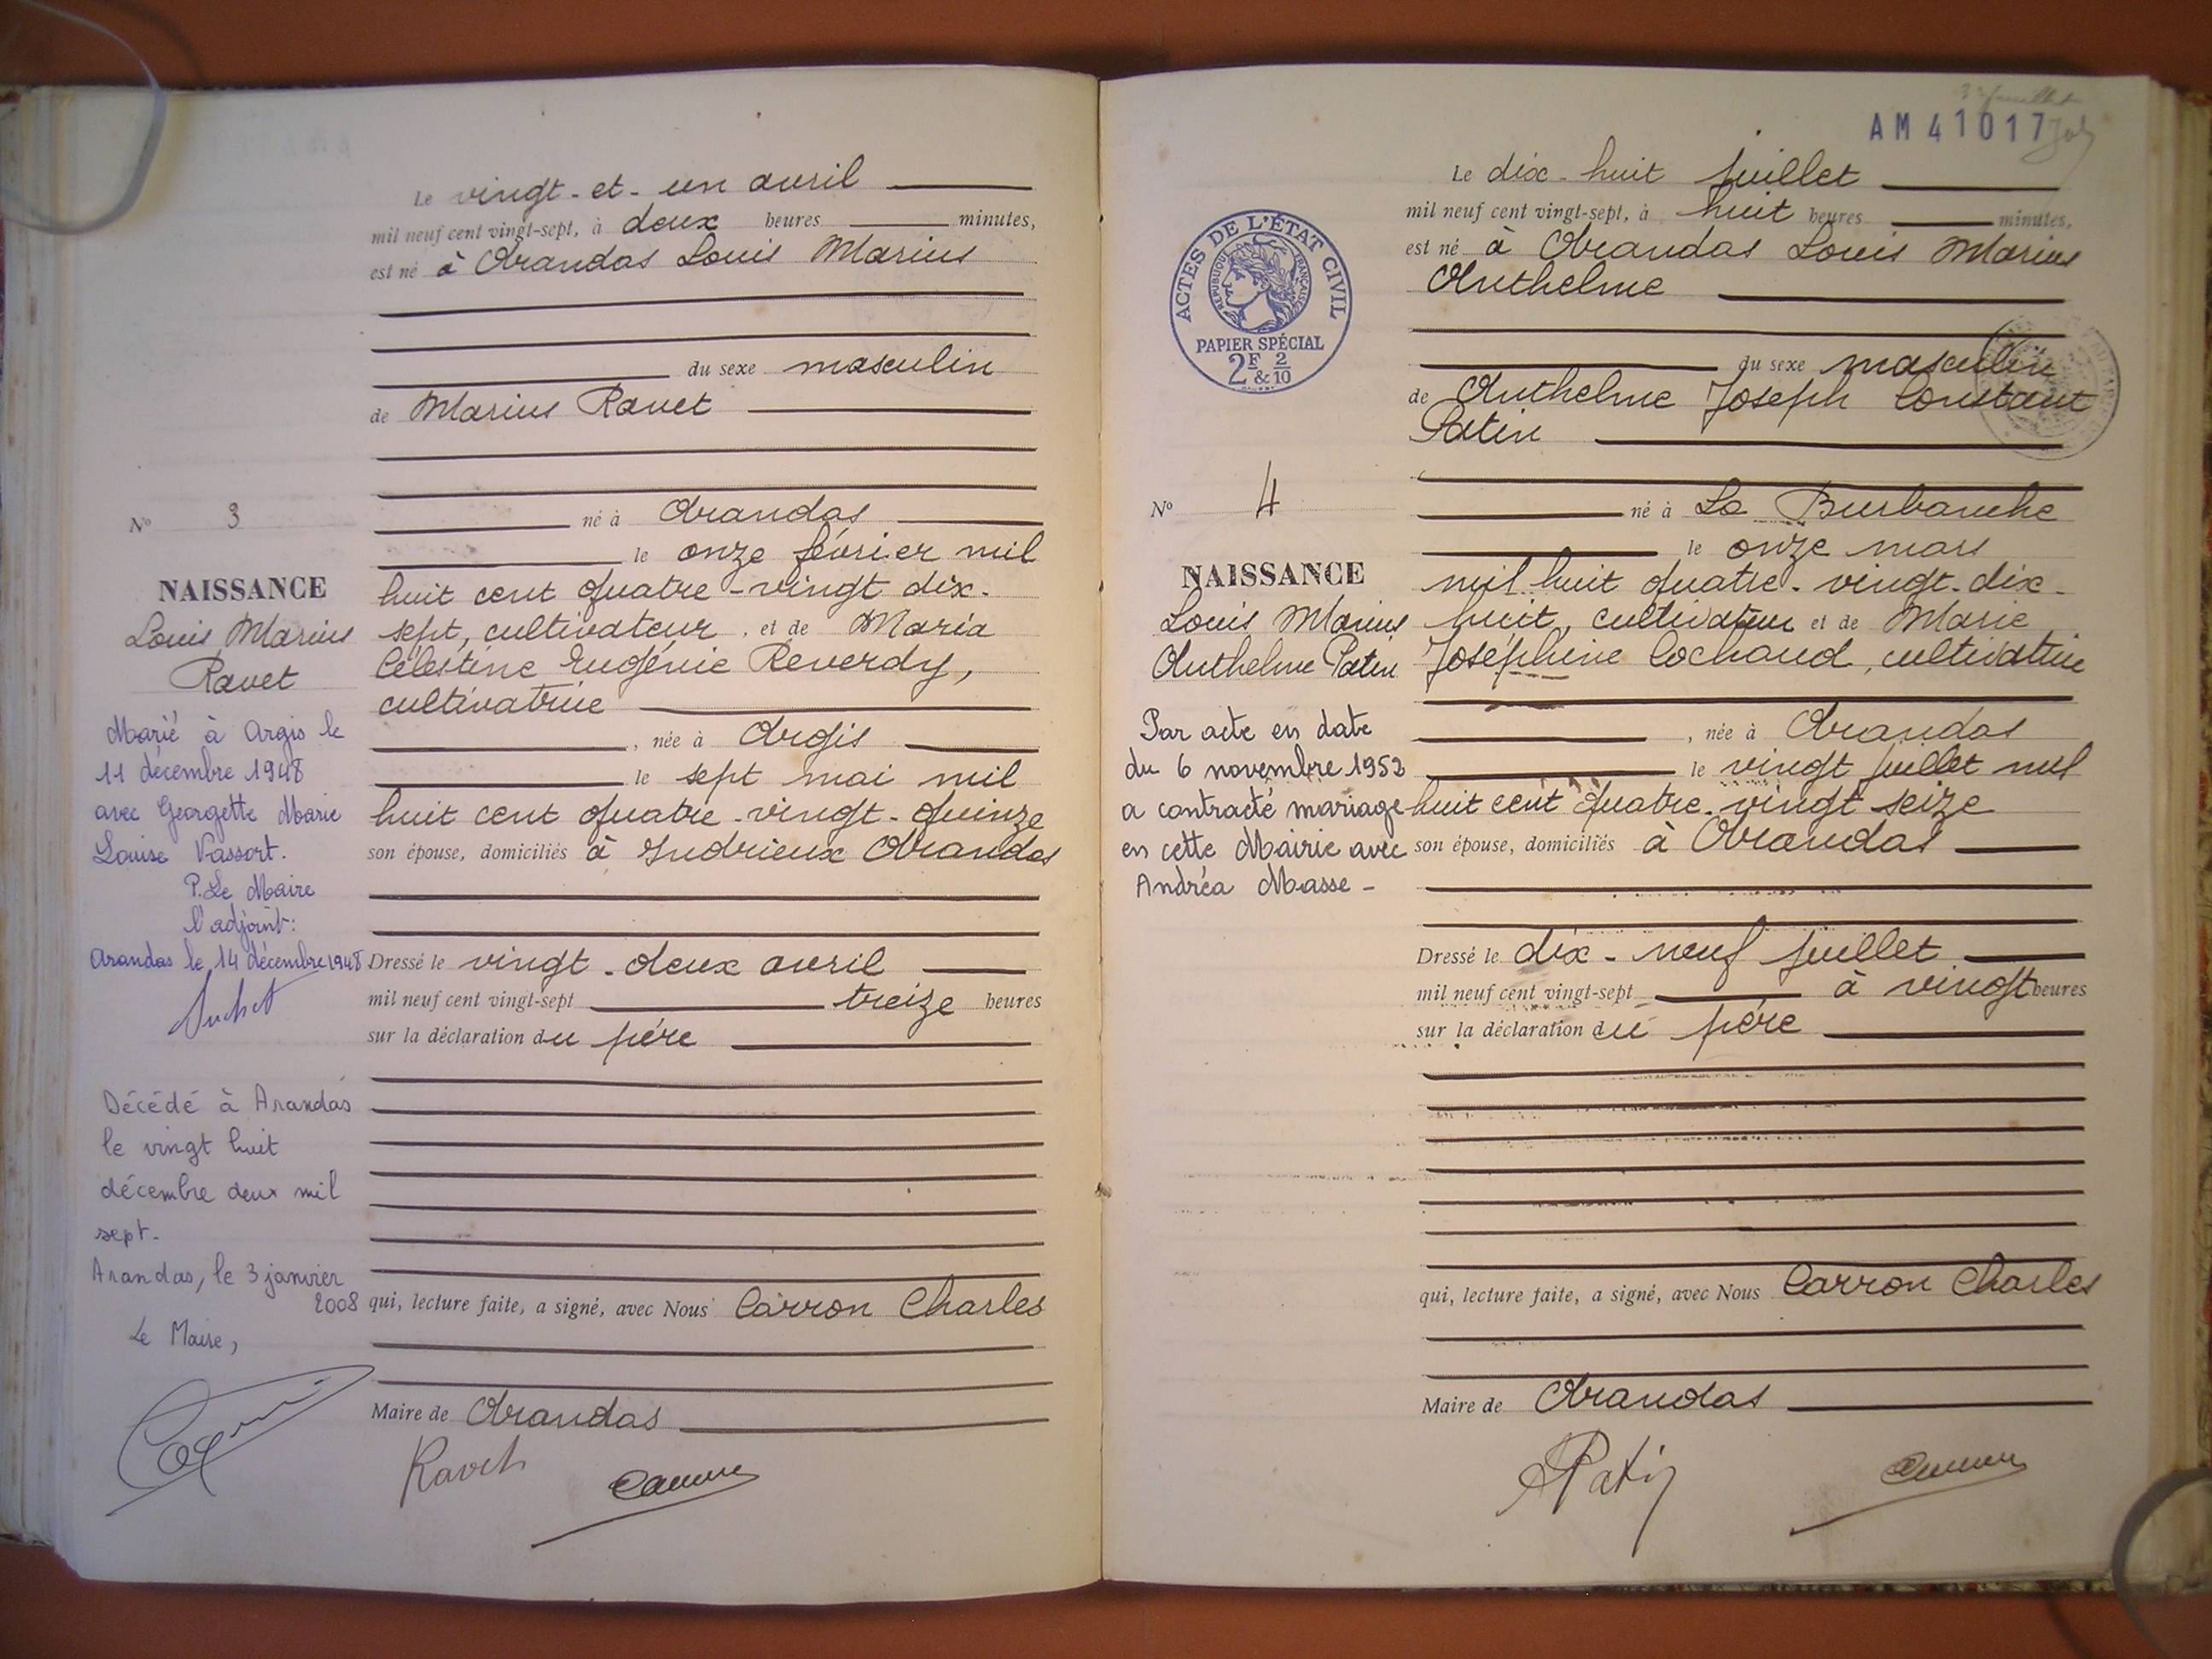 Le vingt-et-un avril
mil neuf cent vingt-sept, à deux heures minutes,
est né à Arandas Louis Marius
du sexe masculin
de Marius Ravet
né à Arandas
le onze février mil
huit cent quatre-vingt dix-
sept, cultivateur, et de Maria
Célestine Eugénie Reverdy,
cultivatrice
, née à Argis
le sept mai mil
huit cent quatre-vingt-quinze
son épouse, domiciliés à Indrieux Arandas
Dressé le vingt-deux avril
mil neuf cent vingt-sept treize heures
sur la déclaration du père
qui, lecture faite, a signé, avec Nous Carron Charles
Maire de Arandas
Ravet
Nº 3
NAISSANCE
Louis Marius
Ravet
Marié à Argis le
11 décembre 1948
avec Georgette Marie
Louise Vassort.
P. Le Maire
l'adjoint:
Arandas le 14 décembre 1948
Décédé à Arandas
le vingt huit
décembre deux mil
sept.
Arandas, le 3 janvier
2008
Le Maire,
AM 41017
ACTES DE L'ÉTAT CIVIL
RÉPUBLIQUE FRANÇAISE
PAPIER SPÉCIAL
2F & 2/10
Nº 4
NAISSANCE
Louis Marius
Anthelme Patin
Par acte en date
du 6 novembre 1952
a contracté mariage
en cette Mairie avec
Andréa Masse -
Le dix-huit juillet
mil neuf cent vingt-sept, à huit heures minutes,
est né à Arandas Louis Marius
Anthelme
du sexe masculin
de Anthelme Joseph Constant
Patin
né à La Burbanche
le onze mars
mil huit quatre-vingt-dix-
huit, cultivateur et de Marie
Joséphine Cochaud, cultivatrice
, née à Arandas
le vingt juillet mil
huit cent quatre-vingt seize
son épouse, domiciliés à Arandas
Dressé le dix-neuf juillet
mil neuf cent vingt-sept à vingt heures
sur la déclaration du père
qui, lecture faite, a signé, avec Nous Carron Charles
Maire de Arandas
APatin